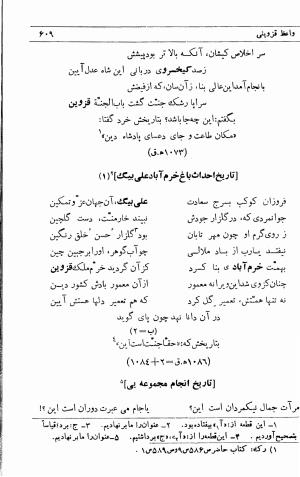 واعظ قزوینی ۶۰۹
سر اخلاص کیشان، آنکه بالا تر بود پیشش
ز صد کیخسروی دربانی این شاه عدل آیین
بانجام آمد این عالی بنا، زآنسان، که از فیضش
سراپا رشک جنت گشت باب الجنّهٔ قزوین
بگفتم: این چه جا باشد؟ بتاریخش خرد گفتا:
«مکان طاعت و جای دعای پادشاه دین»۱
(۱۰۷۳ه.ق)
[تاریخ احداث باغ خرم آباد علی بیگ]۲(۱)
فروزان کوکب برج سعادت علی بیگ، آن جهان عزّ و تمکین
جوانمردی که، در گلزار جودش نبیند خار منّت، دست گلچین
ز روی گرم او چون مهر تابان بود گلزار «حسن» خلق رنگین
نیفتد یارب از باد ملالی چو آب گوهر، اورا بر جبین چین
بهمّت خرم آباد ی بنا کرد کز آن گردید خرّم ملکت قزوین
چنان کزوی شد این ویرانه معمور از آن معمور بادش کشور دین
نه تنها همّتش، تعمیر گل کرد که هم تعمیر دلها هستش آیین
در آن دانا نهد چون پای گوید
(ب=۲)
بتاریخش که: «حقّا جنّت است این»۴
(۱۰۸۶ه.ق=۲+۱۰۸۴)
[تاریخ انجام مجموعه یی]۵
مرآت جمال نیکمردان است این؟ یا جام می عبرت دوران است این ؟!
۱– این قطعه از: «ه آ»، بیفتاده بود. ۲– عنوان را ما بر نهادیم. ۳– ج: برد؛ قیاساً
بتصحیح آوردیم . ۴– این قطعه را از: «ه آ»، «ج» برداشتیم. ۵– عنوان را ما بر نهادیم.
۱) رکه: کتاب حاضر ص۵۸۶ و ص۵۸۹ ص۱.